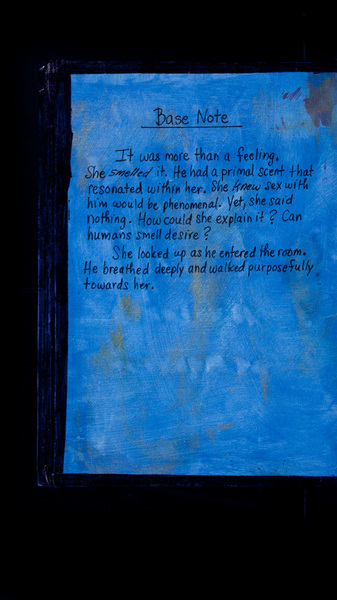 Base Note
It was more than a feeling.
She smelled it. He had a primal scent that
resonated within her. She knew sex with
him would be phenomenal. Yet, she said
nothing. How could she explain it? Can
humans smell desire?
She looked up as he entered the room.
He breathed deeply and walked purposefully
towards her.